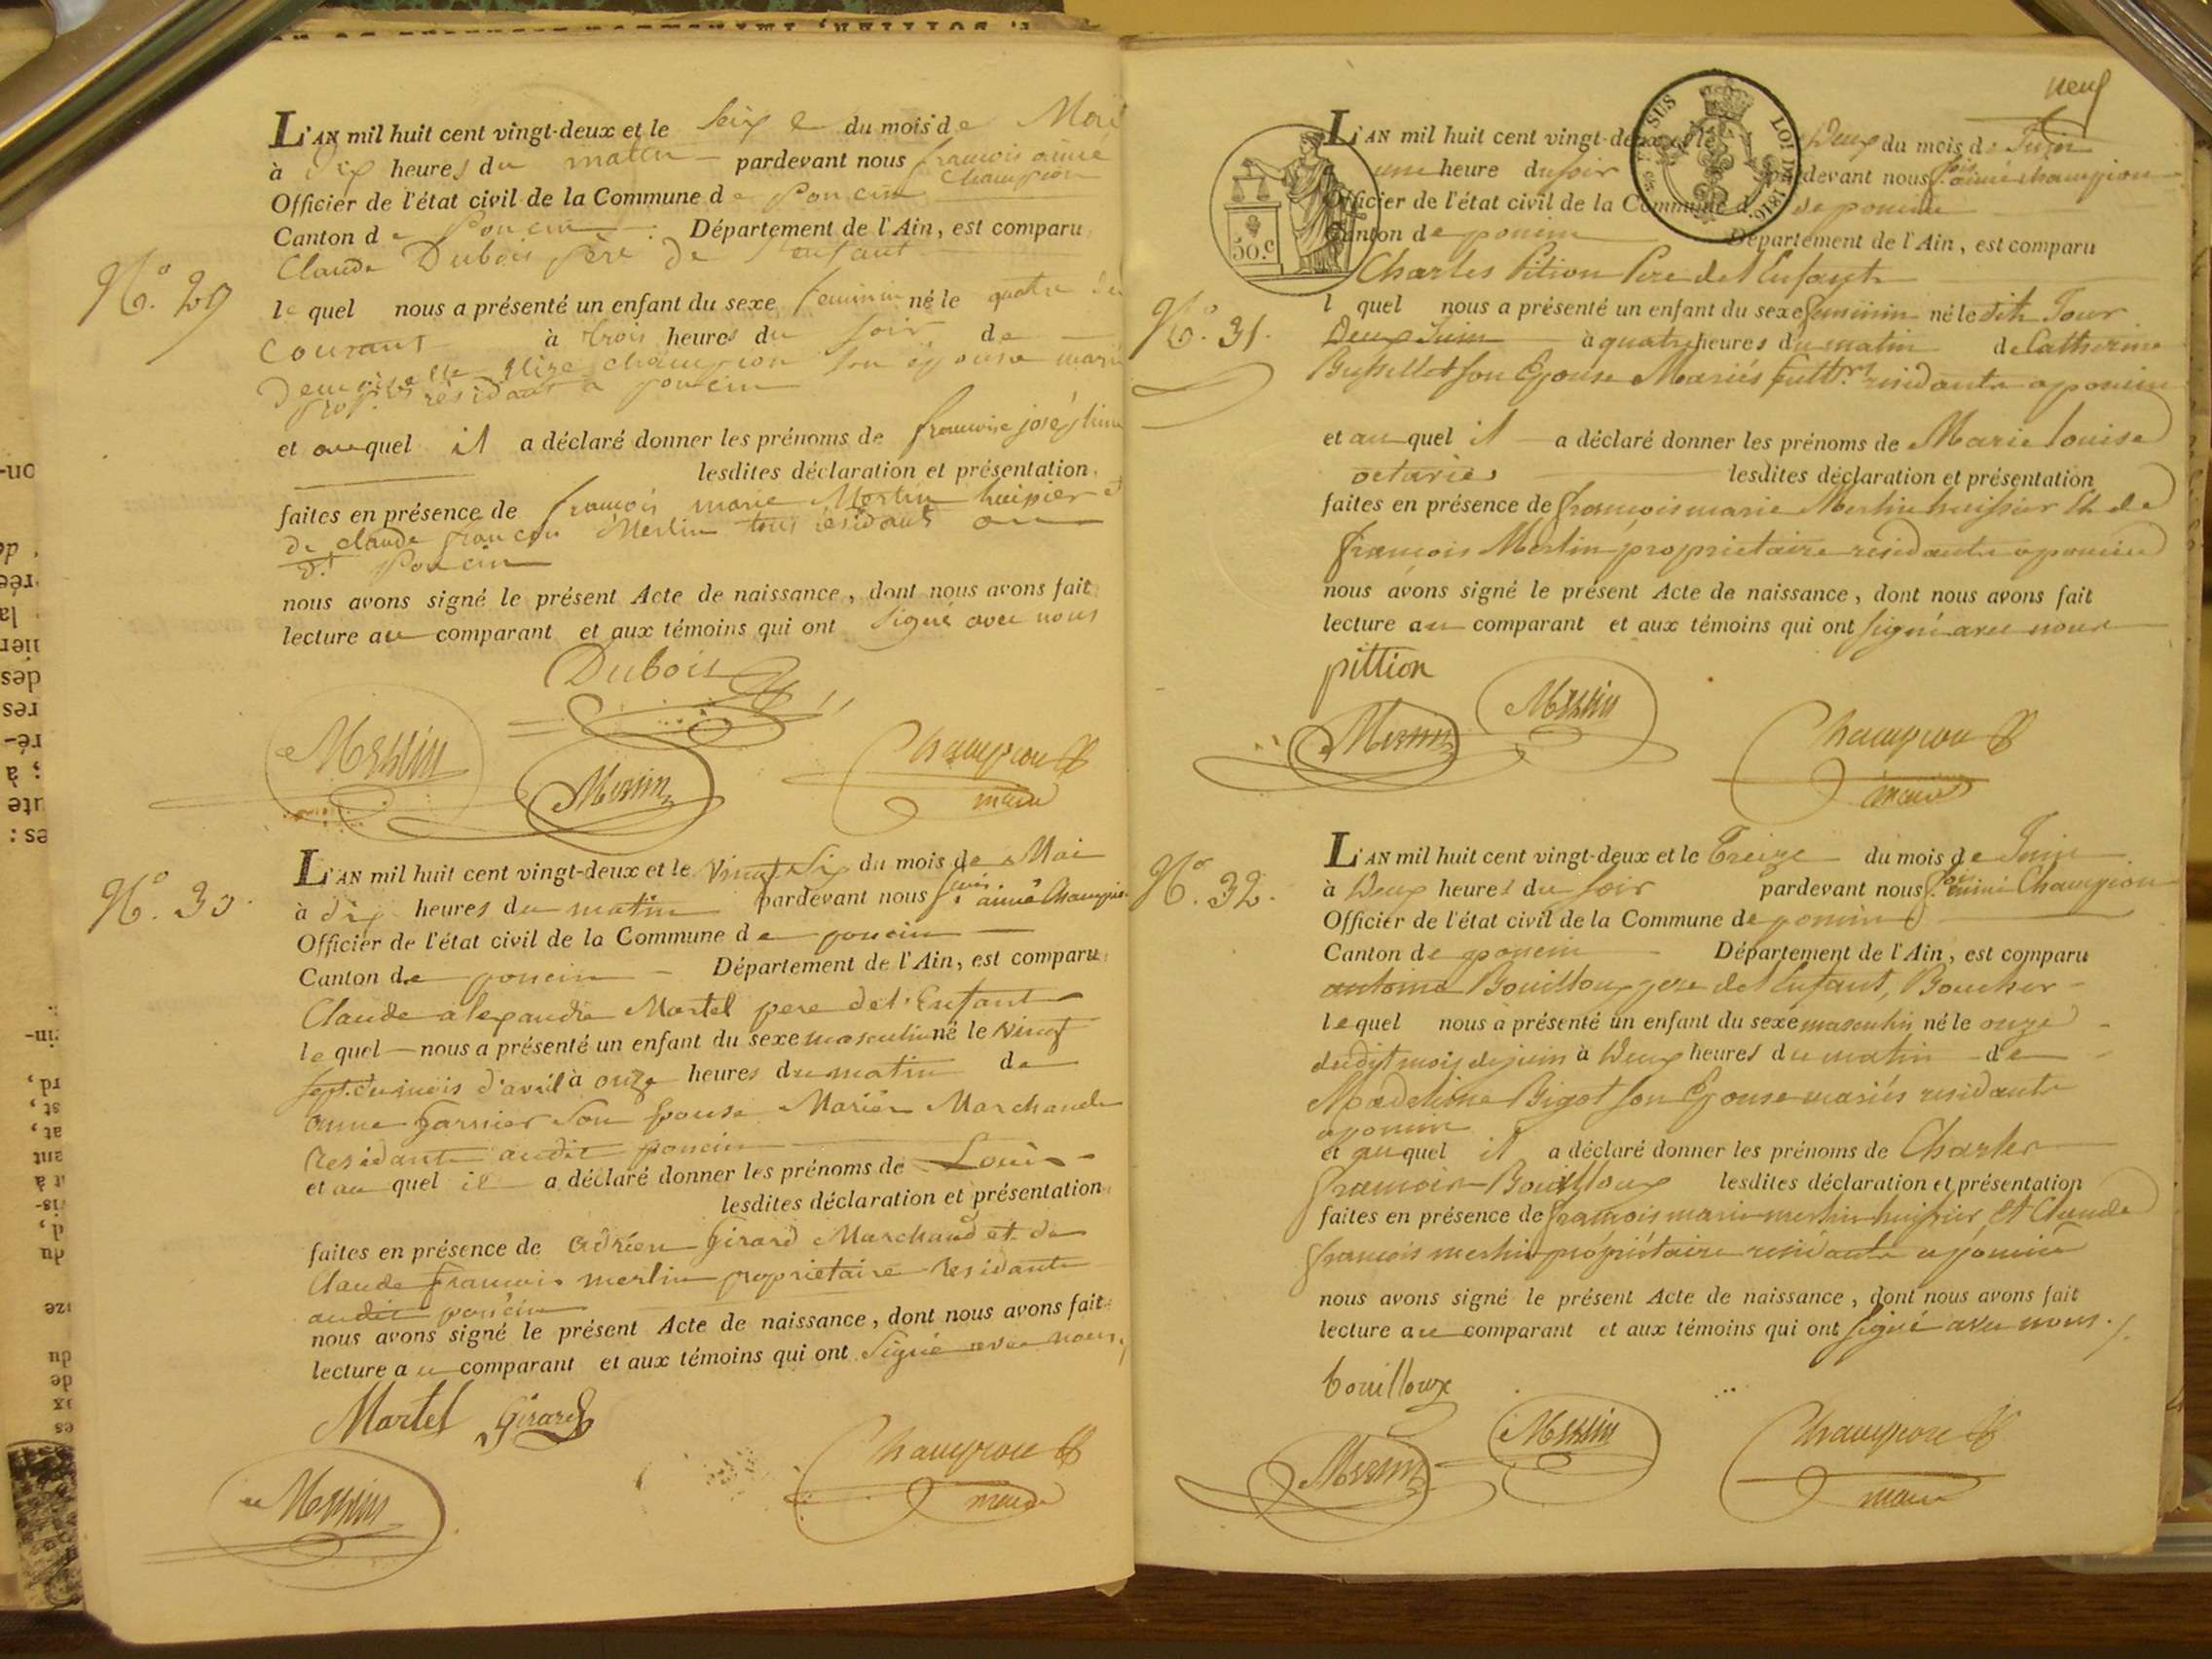 L'AN mil huit cent vingt-deux et le Seize du mois de Mai
à Dix heures du matin pardevant nous francois aimé
champion
Officier de l'état civil de la Commune de Poncin
Canton de Poncin Département de l'Ain, est comparu
Claude Dubois père de l'enfant
N.° 29
lequel nous a présenté un enfant du sexe feminin né le quatre du
courant à trois heures du soir de
Champion son épouse mariés
résidant a poncin
et auquel il a déclaré donner les prénoms de francoise joséphine
lesdites déclaration et présentation
faites en présence de francois marie Merlin huissier et
de claude francois Merlin tous résidants au
d.t Poncin
nous avons signé le présent Acte de naissance, dont nous avons fait
lecture au comparant et aux témoins qui ont signé avec nous
Dubois
Merlin
Merlin
Champion
maire
N.° 30.
L'AN mil huit cent vingt-deux et le Vingt Six du mois de Mai
à dix heures du matin pardevant nous f.cois aimé Champion
Officier de l'état civil de la Commune de poncin
Canton de poncin Département de l'Ain, est comparu
Claude alexandre Martel pere de l'Enfant
lequel nous a présenté un enfant du sexe masculin né le vingt
sept du mois d'avril à onze heures du matin de
anne garnier Son Epouse Mariés Marchands
Residants audit poncin
et au quel il a déclaré donner les prénoms de Louis
lesdites déclaration et présentation
faites en présence de adrien Girard Marchand et de
Claude francois merlin proprietaire Residants
audit poncin
nous avons signé le présent Acte de naissance, dont nous avons fait
lecture au comparant et aux témoins qui ont Signé avec nous
Martel Girard
Merlin
Champion
maire
neuf
SUS LOI DE 1816.
50.c
L'AN mil huit cent vingt-deux et le Deux du mois de Juin
une heure du soir pardevant nous f.cois aimé champion
Officier de l'état civil de la Commune de poncin
Canton de poncin Département de l'Ain, est comparu
Charles Pition Pere de l'Enfant
N.° 31.
l quel nous a présenté un enfant du sexe feminin né le dit Jour
Deux Juin à quatre heures du matin de Catherine
son Epouse Mariés residants a poncin
et au quel il a déclaré donner les prénoms de Marie louise
octavie lesdites déclaration et présentation
faites en présence de francois marie Merlin huissier Et de
francois Merlin proprietaire residants a poncin
nous avons signé le présent Acte de naissance, dont nous avons fait
lecture au comparant et aux témoins qui ont signé avec nous
pittion
Merlin
Merlin
Champion
maire
N.° 32.
L'AN mil huit cent vingt-deux et le Treize du mois de Juin
à Deux heures du soir pardevant nous f.cois aimé Champion
Officier de l'état civil de la Commune de poncin
Canton de poncin Département de l'Ain, est comparu
antoine Bouilloux pere de l'Enfant, Boucher
lequel nous a présenté un enfant du sexe masculin né le onze
dudit mois de juin à Deux heures du matin de
Madeleine Bigot son Epouse mariés residants
a poncin
et au quel il a déclaré donner les prénoms de Charles
francois Bouilloux lesdites déclaration et présentation
faites en présence de francois marie merlin huissier, Et Claude
francois merlin propriétaire residants a poncin
nous avons signé le présent Acte de naissance, dont nous avons fait
lecture au comparant et aux témoins qui ont signé avec nous.
bouilloux
Merlin
Merlin
Champion
maire